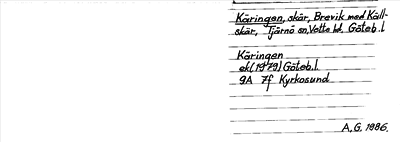 Käringen, skär, Brevik med Käll-
skär, Tjärnö sn, Vette hd, Göteb. l
Käringen
ek (1979) Göteb. l.
9A 7f Kyrkosund
A.G. 1986.